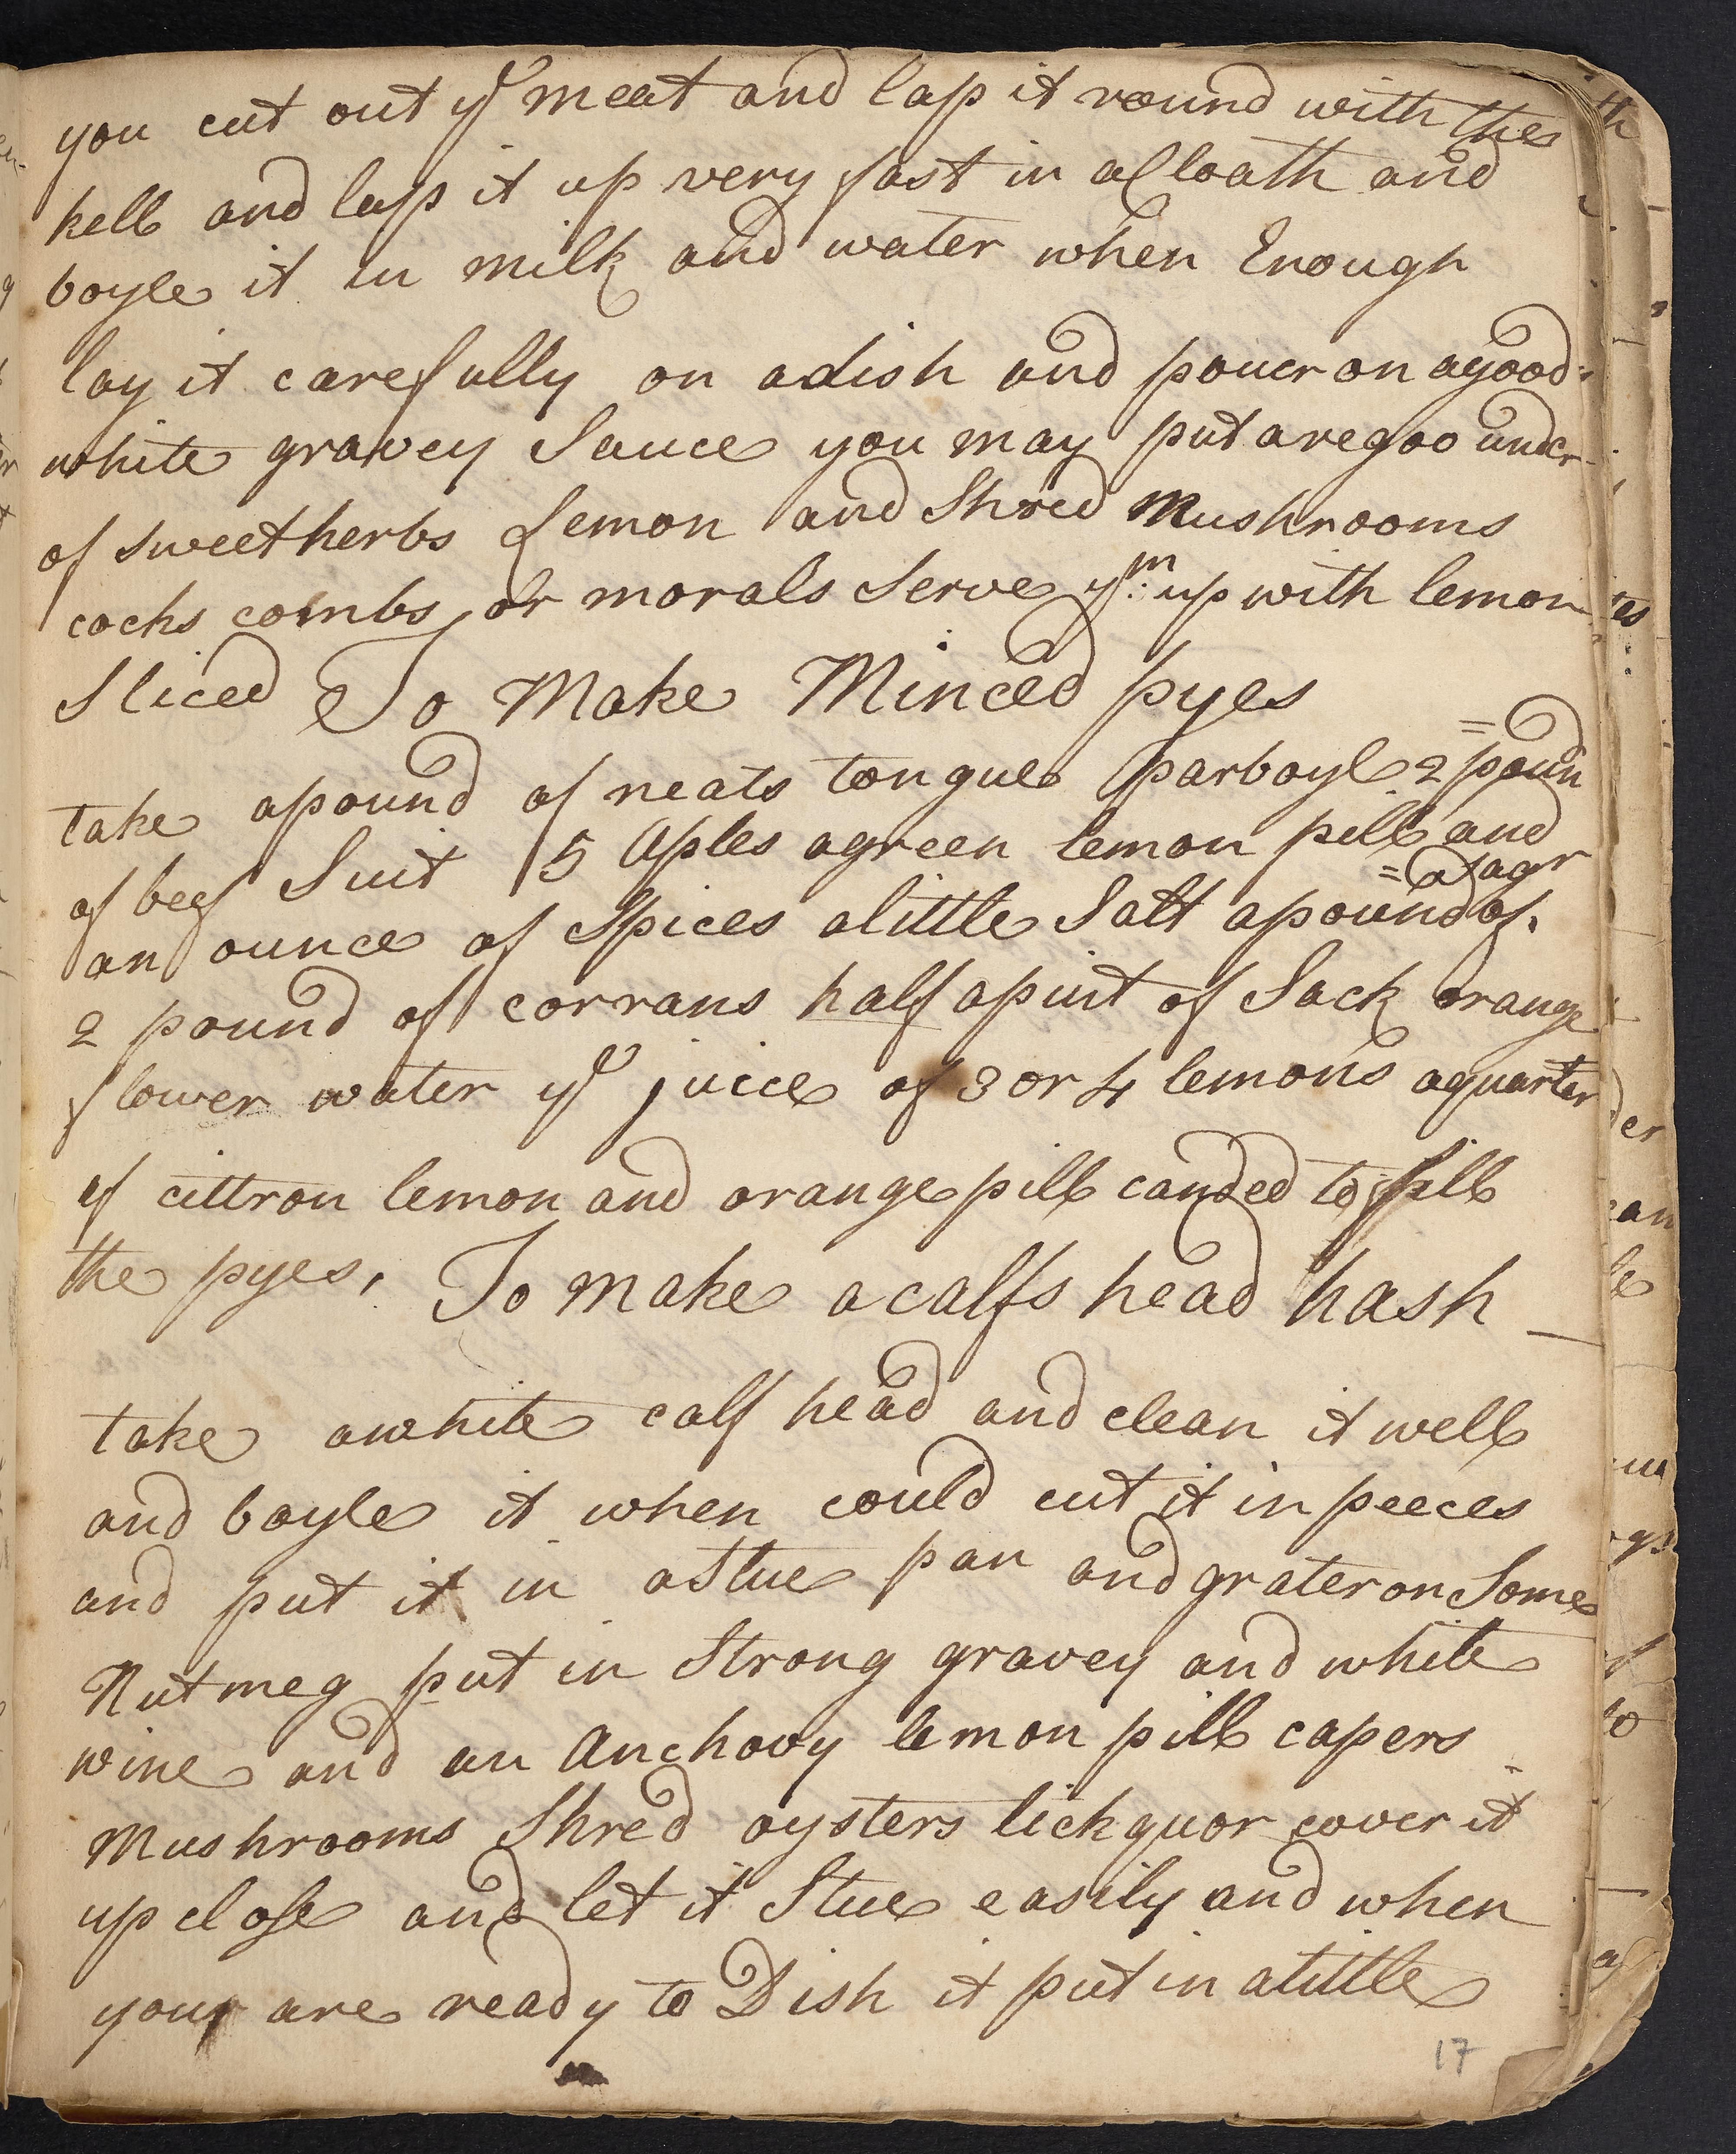 you cut out ye meat and lap it round with the
kell and lap it up very fast in a Cloath and
boyle it in milk and water when Enough
lay it carefully on a dish and pouer on a good
white gravey Sauce you may put a regoo under
of sweet herbs Lemon and Shred Mushrooms
cocks combs or morals Serve ym: up with lemon
Sliced To Make Minced pyes
take a pound of neats tongue parboyl 2 poun
=d
of beef Suit 5 Aples a green lemon pill and
an ounce of Spices a little Salt a pound of
=Sagr
2 pound of corrans half a pint of Sack orange
flower water ye juice of 3 or 4 lemons a quarter
of cittron lemon and orange pill canded to fill
the pyes, To make a calfs head hash
take a white calf head and clean it well
and boyle it when could cut it in peeces
and put it in a Stue pan and grater on Some
Nutmeg put in Strong gravey and white
wine and an Anchovy lemon pill capers
Mushrooms Shred oysters lickquor cover it
up close and let it Stue easily and when
your are ready to Dish it put in a little
17